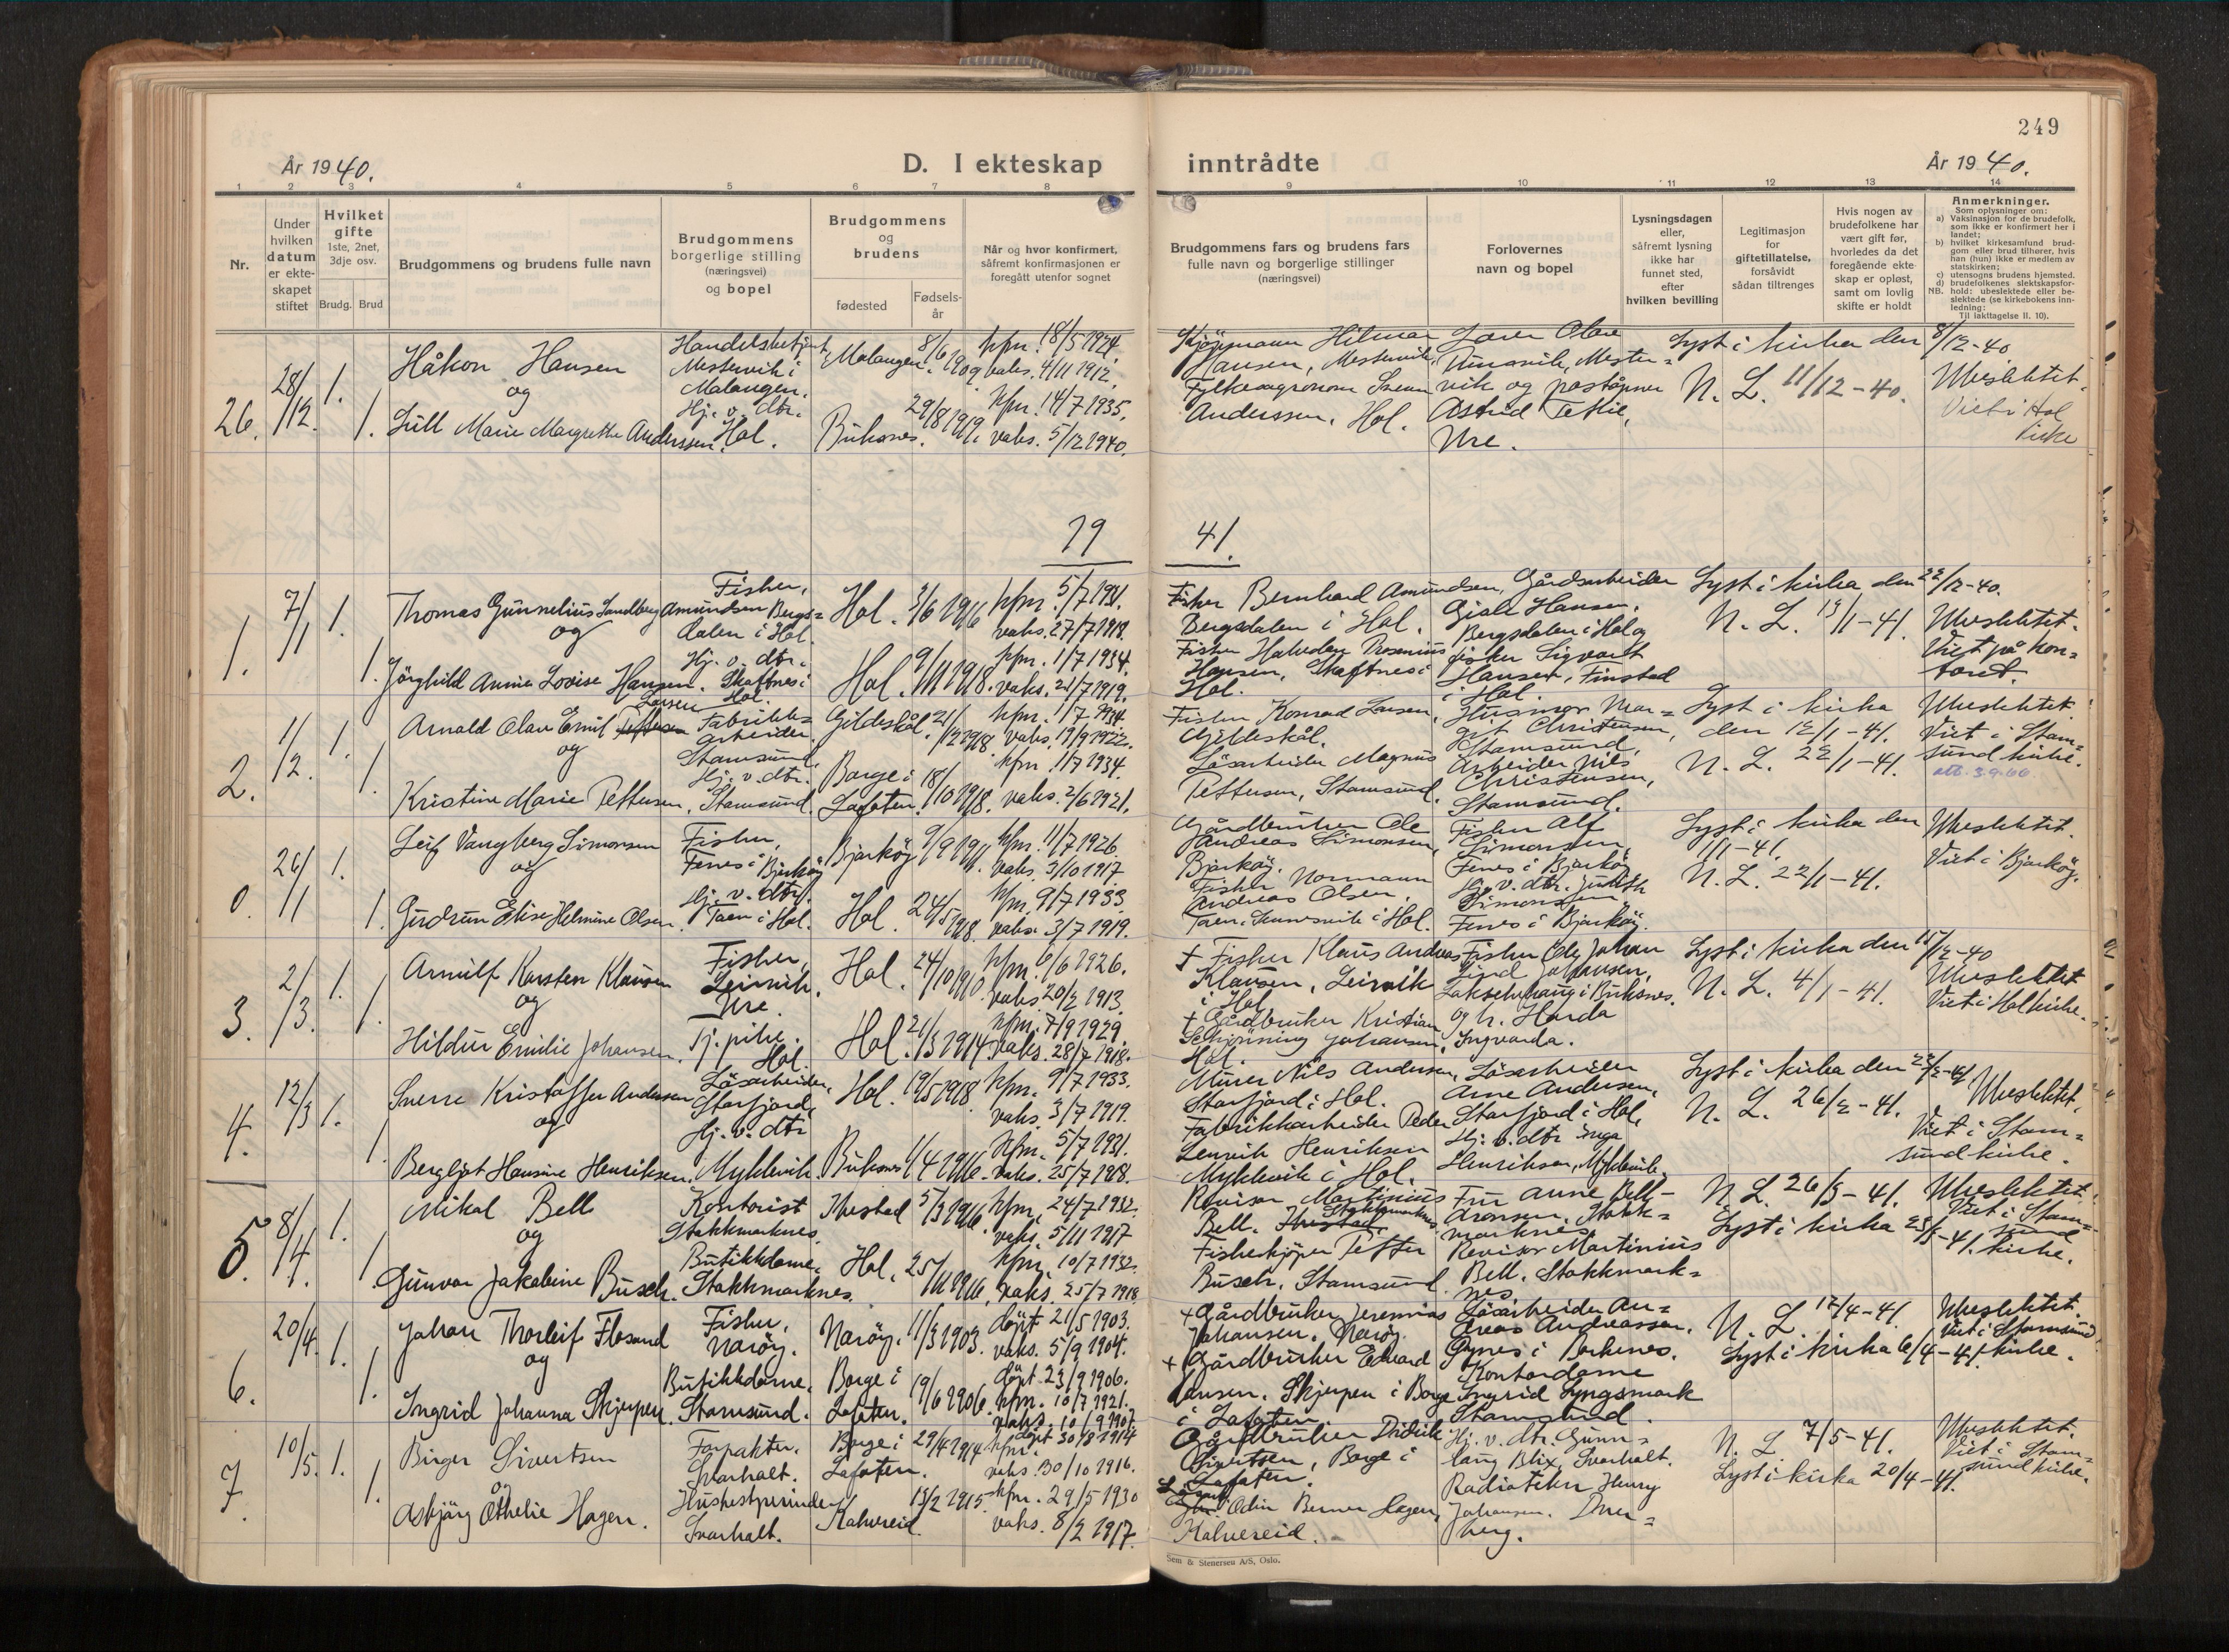 249
År 1940.
D. I ekteskap inntrådte
År 1940.
1 2 3 4 5 6 7 8 9 10 11 12 13 14
Nr.
Under hvilken datum er ekteskapet stiftet
Hvilket gifte 1ste, 2net, 3dje osv.
Brudg. Brud
Brudgommens og brudens fulle navn
Brudgommens borgerlige stilling (næringsvei) og bopel
Brudgommens og brudens
fødested
Fødselsår
Når og hvor konfirmert, såfremt konfirmasjonen er foregått utenfor sognet
Brudgommens fars og brudens fars fulle navn og borgerlige stillinger (næringsvei)
Forlovernes navn og bopel
Lysningsdagen eller, såfremt lysning ikke har funnet sted, efter hvilken bevilling
Legitimasjon for giftetillatelse, forsåvidt sådan tiltrenges
Hvis nogen av brudefolkene har vært gift før, hvorledes da det foregående ekteskap er opløst, samt om lovlig skifte er holdt
Anmerkninger.
Som oplysninger om:
a) Vaksinasjon for de brudefolk, som ikke er konfirmert her i landet;
b) hvilket kirkesamfund brudgom eller brud tilhører, hvis han (hun) ikke er medlem av statskirken;
c) utensogns brudens hjemsted.
d) brudefolkenes slektskapsforhold: ubeslektede eller beslektede (se kirkebokens innledning:
NB.
Til iakttagelse II. 10).
26. 28/12. 1. 1.
Håkon Hansen
og
Lull Marie Margrethe Anderssen.
Handelsbetjent
Mestervik i
Malangen.
Hj. v. dtr.
Hol.
Malangen. 8/6 1909.
Buksnes. 29/8 1919.
kfm. 18/5 1924.
vaks. 4/11 1912.
kfm. 14/7 1935.
vaks. 5/12 1940.
Kjøpmann Hilmar
Hansen, Mestervik.
Fylkesagronom Svenn
Anderssen, Hol.
vik og poståpner
Ure.
Lyst i kirka den 8/12-40.
N. L. 11/12-40.
Ubeslektet.
Viet i Hol
kirke
19 41.
1. 7/1 1. 1.
Thomas Gunnelius Sandberg Amundsen
og
Jörghild Anna Lovise Hansen.
Fisher,
Bergsdalen i Hol.
Hj. v. dtr.
Skaftnes i
Hol.
Hol. 3/6 1916
Hol. 9/11 1918.
kfm. 5/7 1931.
vaks. 27/7 1918.
kfm. 1/7 1934.
vaks. 21/7 1919.
Fisker Bernhard Amundsen,
Bergsdalen i Hol.
Hansen, Skaftnes i
Hol.
Gårdsarbeider
Gisle Hansen,
Bergsdalen i Hol og
fisker Sigvart
Hansen, Finstad
i Hol.
Lyst i kirka den 22/12-40.
N. L. 13/1-41.
Ubeslektet.
Viet på kontoret.
2. 1/2. 1. 1.
Arnald Olav Emil Larsen
og
Kristine Marie Pettersen.
Fabrikkarbeider.
Stamsund.
Hj. v. dtr.
Stamsund.
Gildeskål. 21/12 1918
Borge i Lofoten. 18/10 1918.
kfm. 1/7 1934
vaks. 19/9 1922.
kfm. 1/7 1934.
vaks. 2/6 1921.
Fisker Konrad Larsen,
Gildeskål.
Løsarbeider Magnus
Pettersen, Stamsund.
Husmor Margit Christensen,
Stamsund,
Arbeider Nils
Christensen,
Stamsund.
Lyst i kirka
den 12/1-41.
N. L. 22/1-41.
Ubeslektet
Viet i Stamsund kirke.
0 26/1 1. 1.
Leif Vangberg Simonsen
og
Gudrun Elise Helmine Olsen.
Fisker,
Fenes i Bjarköy
Hj. v. dtr.
Taen i Hol.
Bjarköy 9/9 1911.
Hol. 24/5 1918.
kfm. 11/7 1926.
vaks. 3/10 1917
kfm. 9/7 1933
vaks. 3/7 1919.
Gårdbruker Ole
Andreas Simonsen,
Bjarköy.
Fisker Normann
Andreas Olsen,
Fisker Alf
Simonsen,
Fenes i Bjarköy
Hj. v. dtr. Judith
Simonsen,
Fenes i Bjarköy.
Lyst i kirka den
1/1-41.
N. L. 22/1-41.
Ubeslektet.
Viet i Bjarköy.
3. 2/3. 1. 1.
Arnulf Karsten Klausen
og
Hildur Emilie Johansen.
Fisher,
Leirvik.
Ure.
Tj. pike.
Hol.
Hol. 24/10 1910.
Hol. 21/3 1914
kfm. 6/6 1926.
vaks. 20/2 1913.
kfm. 7/9 1929.
vaks. 28/7 1918.
+ Fisker Klaus Andreas
Klausen, Leirvik
i Hol
+ Gårdbruker Kristian
Johansen,
Hol.
Fisker Ole Johan
Lind Johansen,
i Buksnes.
og h. Harda
Ingvarda.
Lyst i kirka den 15/12-40
N. L. 4/1-41.
Ubeslektet
Viet i Hol kirke.
4. 12/3 1. 1.
Sverre Kristoffer Andersen
og
Bergljot Hansine Henriksen.
Løsarbeider,
Storfjord,
Hj. v. dtr
Myklevik.
Hol. 19/5 1918
Buksnes 1/4 1916.
kfm. 9/7 1933.
vaks. 3/7 1919.
kfm. 5/7 1931.
vaks. 25/7 1918.
Murer Nils Andersen,
Storfjord i Hol.
Fabrikkarbeider Peder
Lenvik Henriksen
Myklevik i Hol.
Løsarbeider
Arne Andersen,
Storfjord i Hol,
Hj. v. dtr Inga
Henriksen, Myklevik.
Lyst i kirka den 23/2-41
N. L. 26/2-41.
Ubeslektet.
Viet i Stamsund kirke.
5. 8/4. 1. 1
Mikal Bell
og
Gunvor Jakobine Busch.
Kontorist
Stokkmarknes.
Butikkdame.
Stokkmarknes.
5/3 1916.
Hol. 25/11 1916.
kfm. 24/7 1932.
vaks. 5/11 1917
kfm. 10/7 1932.
vaks. 25/7 1918.
Revisor Martinius
Bell, Stokkmarknes
Fiskekjöper Petter
Busch, Stamsund.
Fru Anne Bell-
Aronsen, Stokkmarknes
Revisor Martinius
Bell, Stokkmarknes
N. L. 26/3-41.
Lyst i kirka 23/3-41.
Ubeslektet.
Viet i Stamsund kirke.
6. 20/4. 1. 1.
Johan Thorleif Flosand
og
Ingrid Johanna Skjerpen.
Fisker,
Naröy.
Butikkdame.
Stamsund.
Naröy. 11/3 1903.
Borge i Lofoten. 19/6 1906.
döpt 21/5 1903.
vaks. 5/9 1904.
döpt 23/9 1906.
kfm. 10/7 1921.
vaks. 10/9 1907
+ Gårdbruker Jeremias
Johansen. Naröy.
+ Gårdbruker Edvard
Hansen. Skjerpen i Borge
i Lofoten.
Løsarbeider Andreas Andreassen,
Kontordame
Ingrid Lyngsmark
Stamsund.
N. L. 17/4-41.
Lyst i kirka 6/4-41.
Ubeslektet.
Viet i Stamsund
kirke.
7. 10/5. 1. 1.
Birger Sivertsen
og
Asbjörg Othelie Hagen.
Forpakter.
Svarholt.
Husbestyrerinde
Svarholt.
Borge i Lofoten. 29/4 1914
Kalvereid. 13/2 1915
döpt 30/8 1914
vaks. 30/10 1916.
kfm. 29/5 1930
vaks. 8/2 1917.
Gårdbruker Didrik
Sivertsen, Borge i
Lofoten.
Odin Berner Hagen,
Kalvereid.
Hj. v. dtr. Gunnlaug Blix, Svarholt.
Henry
Johansen.
N. L. 7/5-41.
Lyst i kirka 20/4-41.
Ubeslektet.
Viet i Stamsund kirke.
Sem & Stenersen A/S, Oslo.